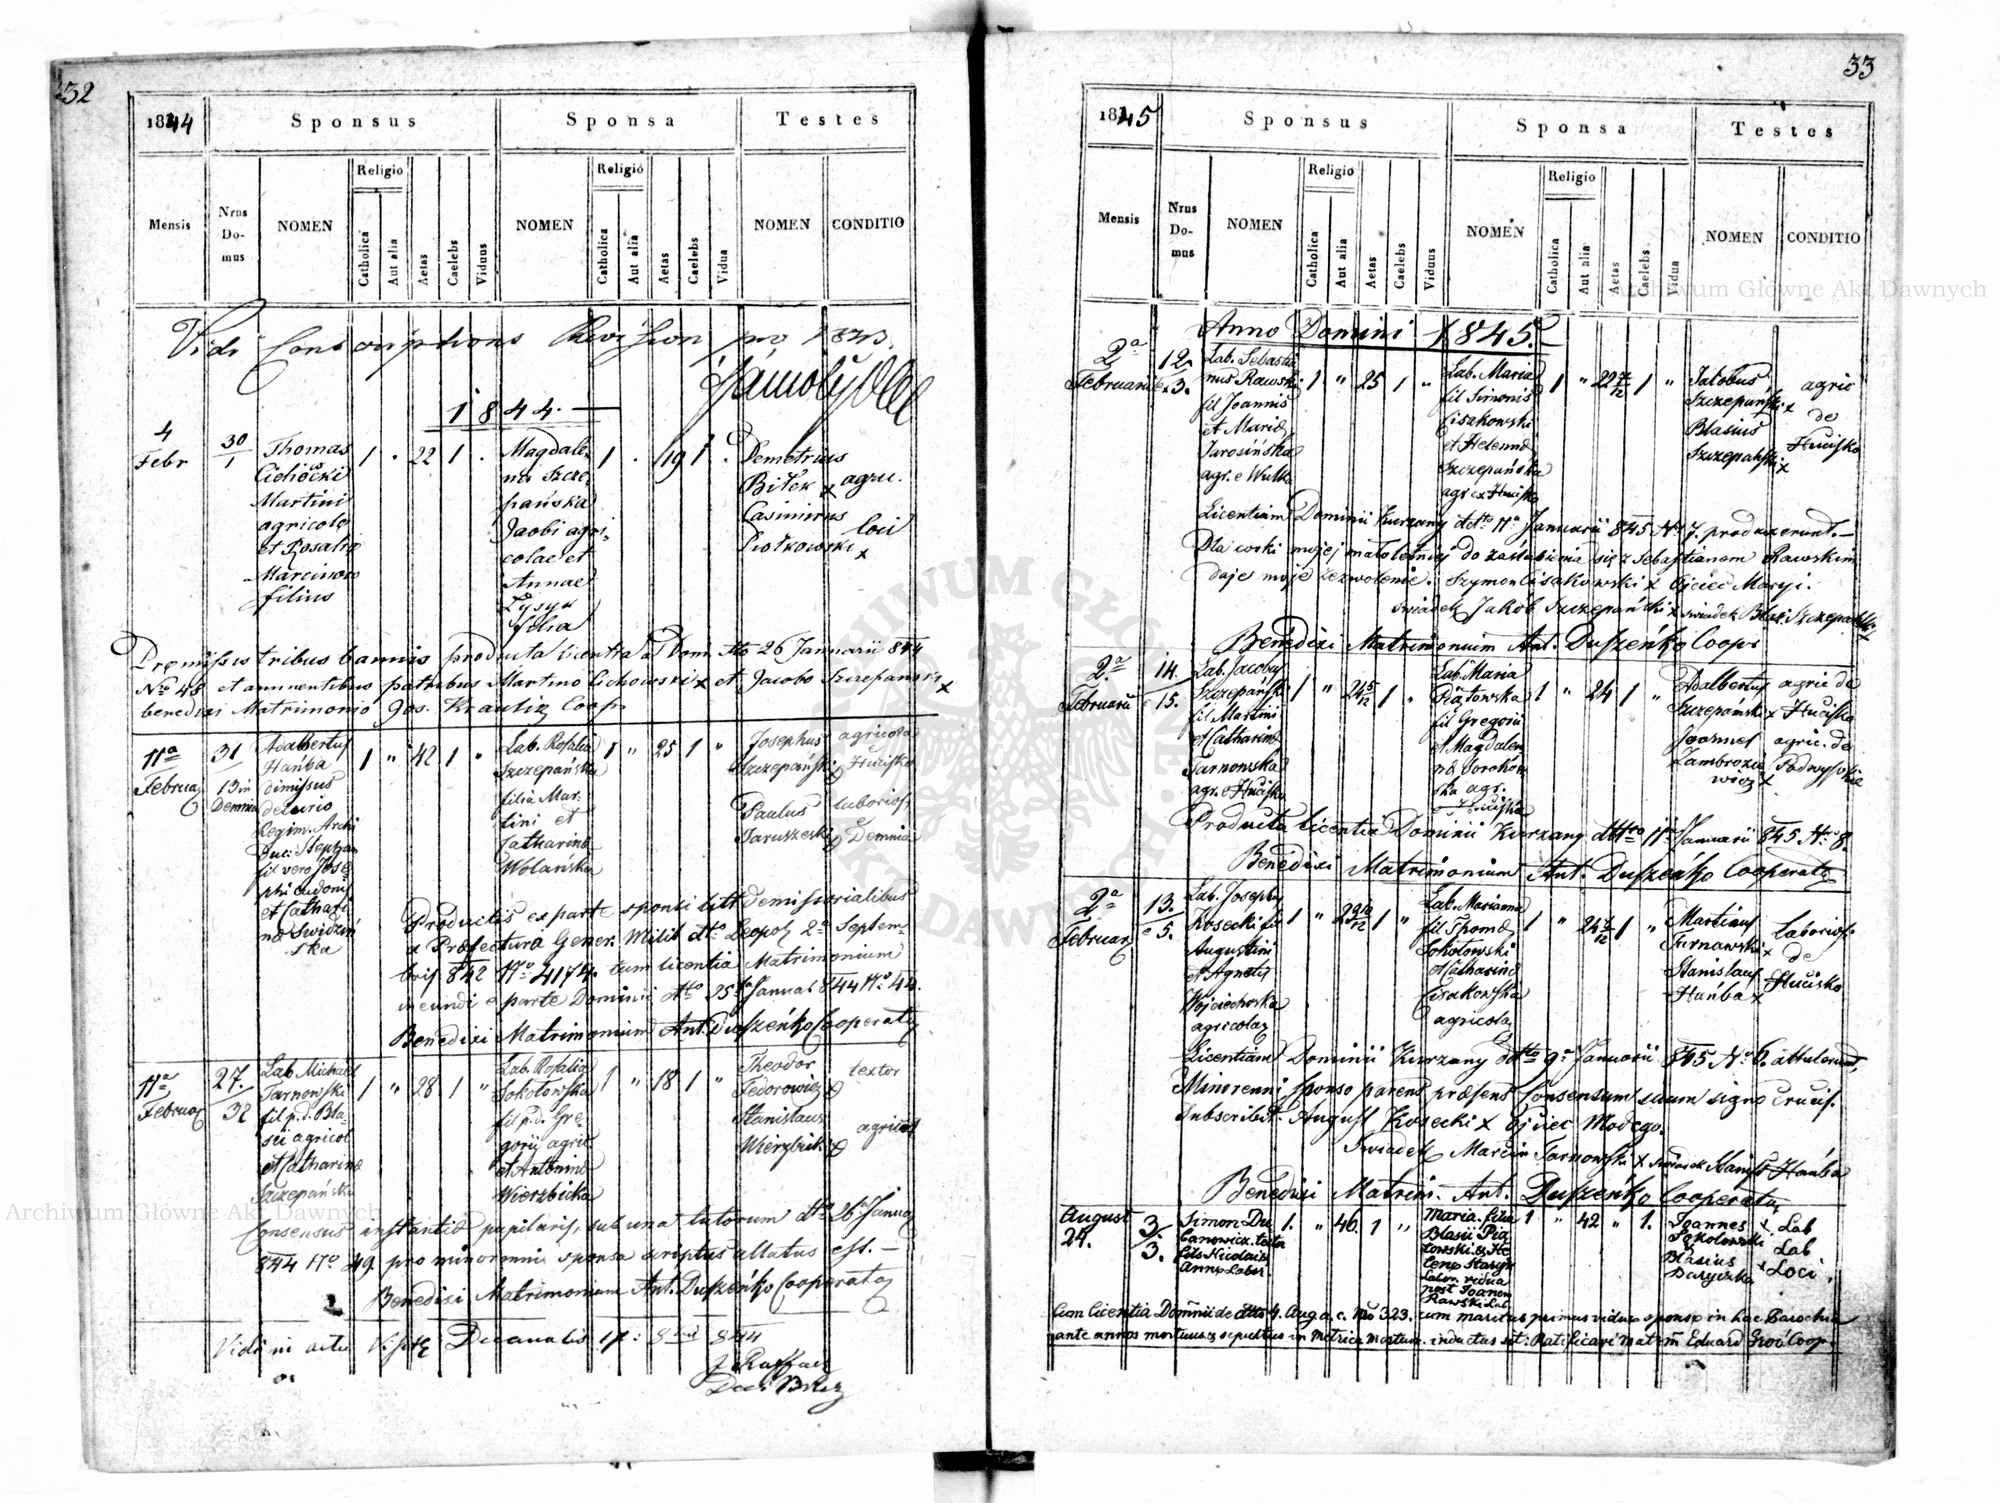 32
1844
Sponsus
Sponsa
Testes
Mensis
Nrus Domus
NOMEN
Religio
Catholica
Aut alia
Aetas
Caelebs
Viduus
NOMEN
Religio
Catholica
Aut alia
Aetas
Caelebs
Vidua
NOMEN
CONDITIO
Vidi
pro 1843.
1844.
4
Febr
30
1
Thomas
Cichocki
Martini
agricolę
et Rosalię
Marcinow
filius
1 " 22 1 "
Magdale-
na Szcze-
pańska
Jacobi agri-
colae et
Annae
Łysyk
filia
1 " 19 1 "
Demetrius
Biłek x
Casimirus
Piotkowski x
agric.
loci
Premissis tribus bannis producta licentia a Domi. dtto 26 Januarii 844
No 48 et annuentibus patribus Martino Cichowski x et Jacobo Szczepański x
benedixi Matrimonio Jos. Coop.
11a
Februar
31
13 in
Demnia
Adalbertus
Hańba
dimissus
decurio
Regim. Archi
Duci Stephan
fil vero Jose
phi
et Cathari
na Swidziń
ska
1 " 42 1 "
Lab. Rosalia
Szczepańska
filia Mar-
tini et
Catharinæ
Wolańska
1 " 25 1 "
Josephus
Szczepański x
Paulus
Jaruszeski x
agricola
Hucisko
laborios.
Demnia
Productis ex parte sponsi litt demissorialibus
a Præfectura Gener. Milit dtto Leopol 2a Septem-
bris 842 No 4174. tum licentia Matrimonium
ineundi e parte Dominii dtto 25 Januar 844 No 44.
Benedixi Matrimonium Ant. Duszeńko Cooperator
11a
Februar
27.
32
Lab. Michael
Tarnowski
fil p. d. Bla-
sii agricol
et Catharinæ
Szczepańska
1 " 28 1 "
Lab. Rosalia
Sokołowska
fil p. d. Gre-
gorii agric
et Antoninæ
Wierzbicka
1 " 18 1 "
Theodor
Fedorowicz x
Stanislaus
Wierzbicki x
textor
agricol
Consensus instantiæ pupilaris, sub una tutorum dtto 26 Januar
844 No 49 pro minorenni sponsa scriptus allatus est.
Benedixi Matrimonium Ant. Duszeńko Cooperator
Vidi in actu Decanalis
844
33
1845
Sponsus
Sponsa
Testes
Mensis
Nrus Domus
NOMEN
Religio
Catholica
Aut alia
Aetas
Caelebs
Viduus
NOMEN
Religio
Catholica
Aut alia
Aetas
Caelebs
Vidua
NOMEN
CONDITIO
Anno Domini 1845.
2a
Februarii
12.
3.
Lab. Sebastia
nus Rawski
fil Joannis
et Mariæ
Jarosińska
agr. e Wulka
1 " 25 1 "
Lab. Maria
fil Simonis
Cisakowski
et Helennæ
Szczepańska
agr ex Hucisko
1 " 22 7/12 1 "
Jakobus
Szczepański x
Blasius
Szczepański x
agric
de
Hucisko
Licentiam Dominii Kurzany dtto 11a Januarii 845 No 7. produxerunt.
Dla corki mojej małoletniej do zaslubienia się z Sebastianem Rawskim
daje moje zezwolenie. Szymon Cisakowski x Ojciec Maryi.
swiadek Jakób Szczepański x swiadek Błaż. Szczepański x
Benedixi Matrimonium Ant. Duszeńko Coopr
2a
Februarii
14.
15.
Lab. Jacobus
Szczepański
fil Martini
et Catharinæ
Tarnowska
agr. e Hucisko
1 " 24 5/12 1 "
Lab. Maria
Piątowska
fil Gregorii
et Magdalen
næ Sorokow
ska agr.
e Hucisko
1 " 24 1 "
Adalbertus
Szczepański x
Joannes
Zambroze
wicz x
agric de
Hucisko
agric. de
Podwysokie
Producta licentia Dominii Kurzany dtto 11a Januarii 845 No 8.
Benedixi Matrimonium Ant. Duszeńko Cooperator
2a
Februar
13.
5.
Lab. Josephus
Kosecki fil
Augustini
et Agnetis
Wojciechoska
agricolar
1 " 23 10/12 1 "
Lab. Marianna
fil Thomæ
Sokołowski
et Catharinæ
Cisakowska
agricolar
1 " 24 7/12 1 "
Martinus
Tarnawski x
Stanislaus
Hańba x
laborios.
de
Hucisko
Licentiam Dominii Kurzany dtto 9a Januarii 845 No 6. attulerunt,
Minorenni sponso parens præsens Consensum suum signo crucis.
subscribit. August Kosecki x Ojciec Modego.
Swiadek Marcin Tarnowski x swiadek Stanisł Hańba
Benedixi Matrim. Ant. Duszeńko Cooperator
August
24.
3/
3.
Simon Du
canowicz. texto
fils Nicolai &
Annæ Labor.
1. " 46. 1 "
Maria. filia
Blasii Pią
towski. & He
lenæ Staryk
Labor. vidua
post Joanem
Rawski Lab.
1 " 42 " 1.
Joannes x
Sokolowski
Blasius x
Daryczka
Lab
Lab
Loci.
Cum licentia Dominii de dtto 4. Aug a. c. No 323. cum maritus primus viduæ sponsæ in hac Parochia
ante annos mortuus & sepultus in Metrica Mortuor. inductus sit: Ratificavi Matrm Eduard Coop.
Archiwum Główne Akt Dawnych
Archiwum Główne Akt Dawnych
ARCHIWUM GŁÓWNE AKT DAWNYCH